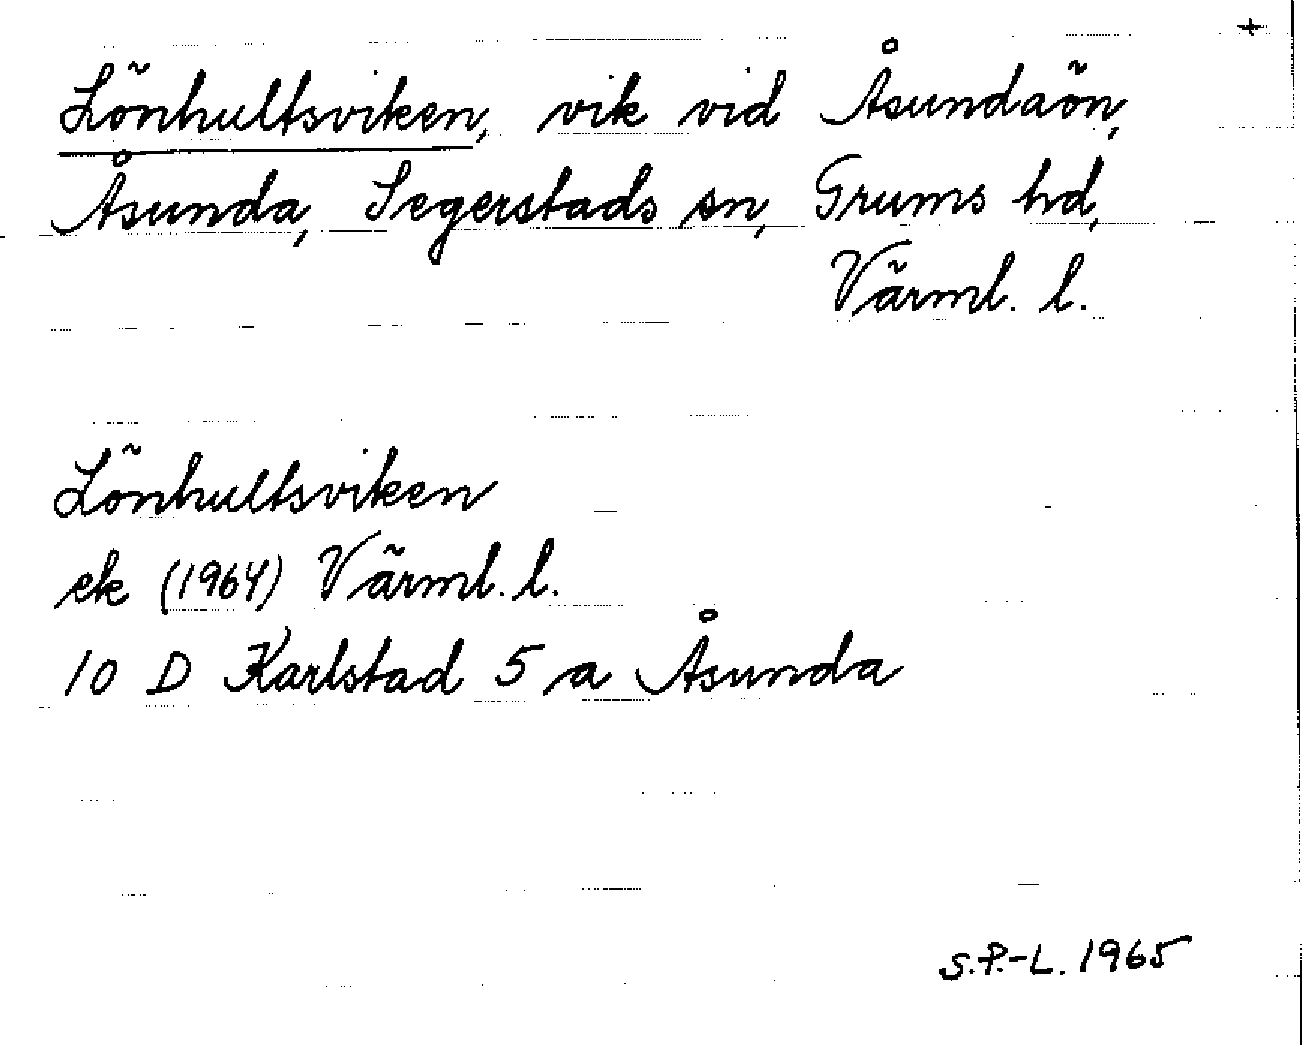 +
Lönhultsviken, vik vid Åsundaön,
Åsunda, Segerstads sn, Grums hd,
Värml. l.
Lönhultsviken
ek (1964) Värml. l.
10 D Karlstad 5 a Åsunda
S.P.-L. 1965